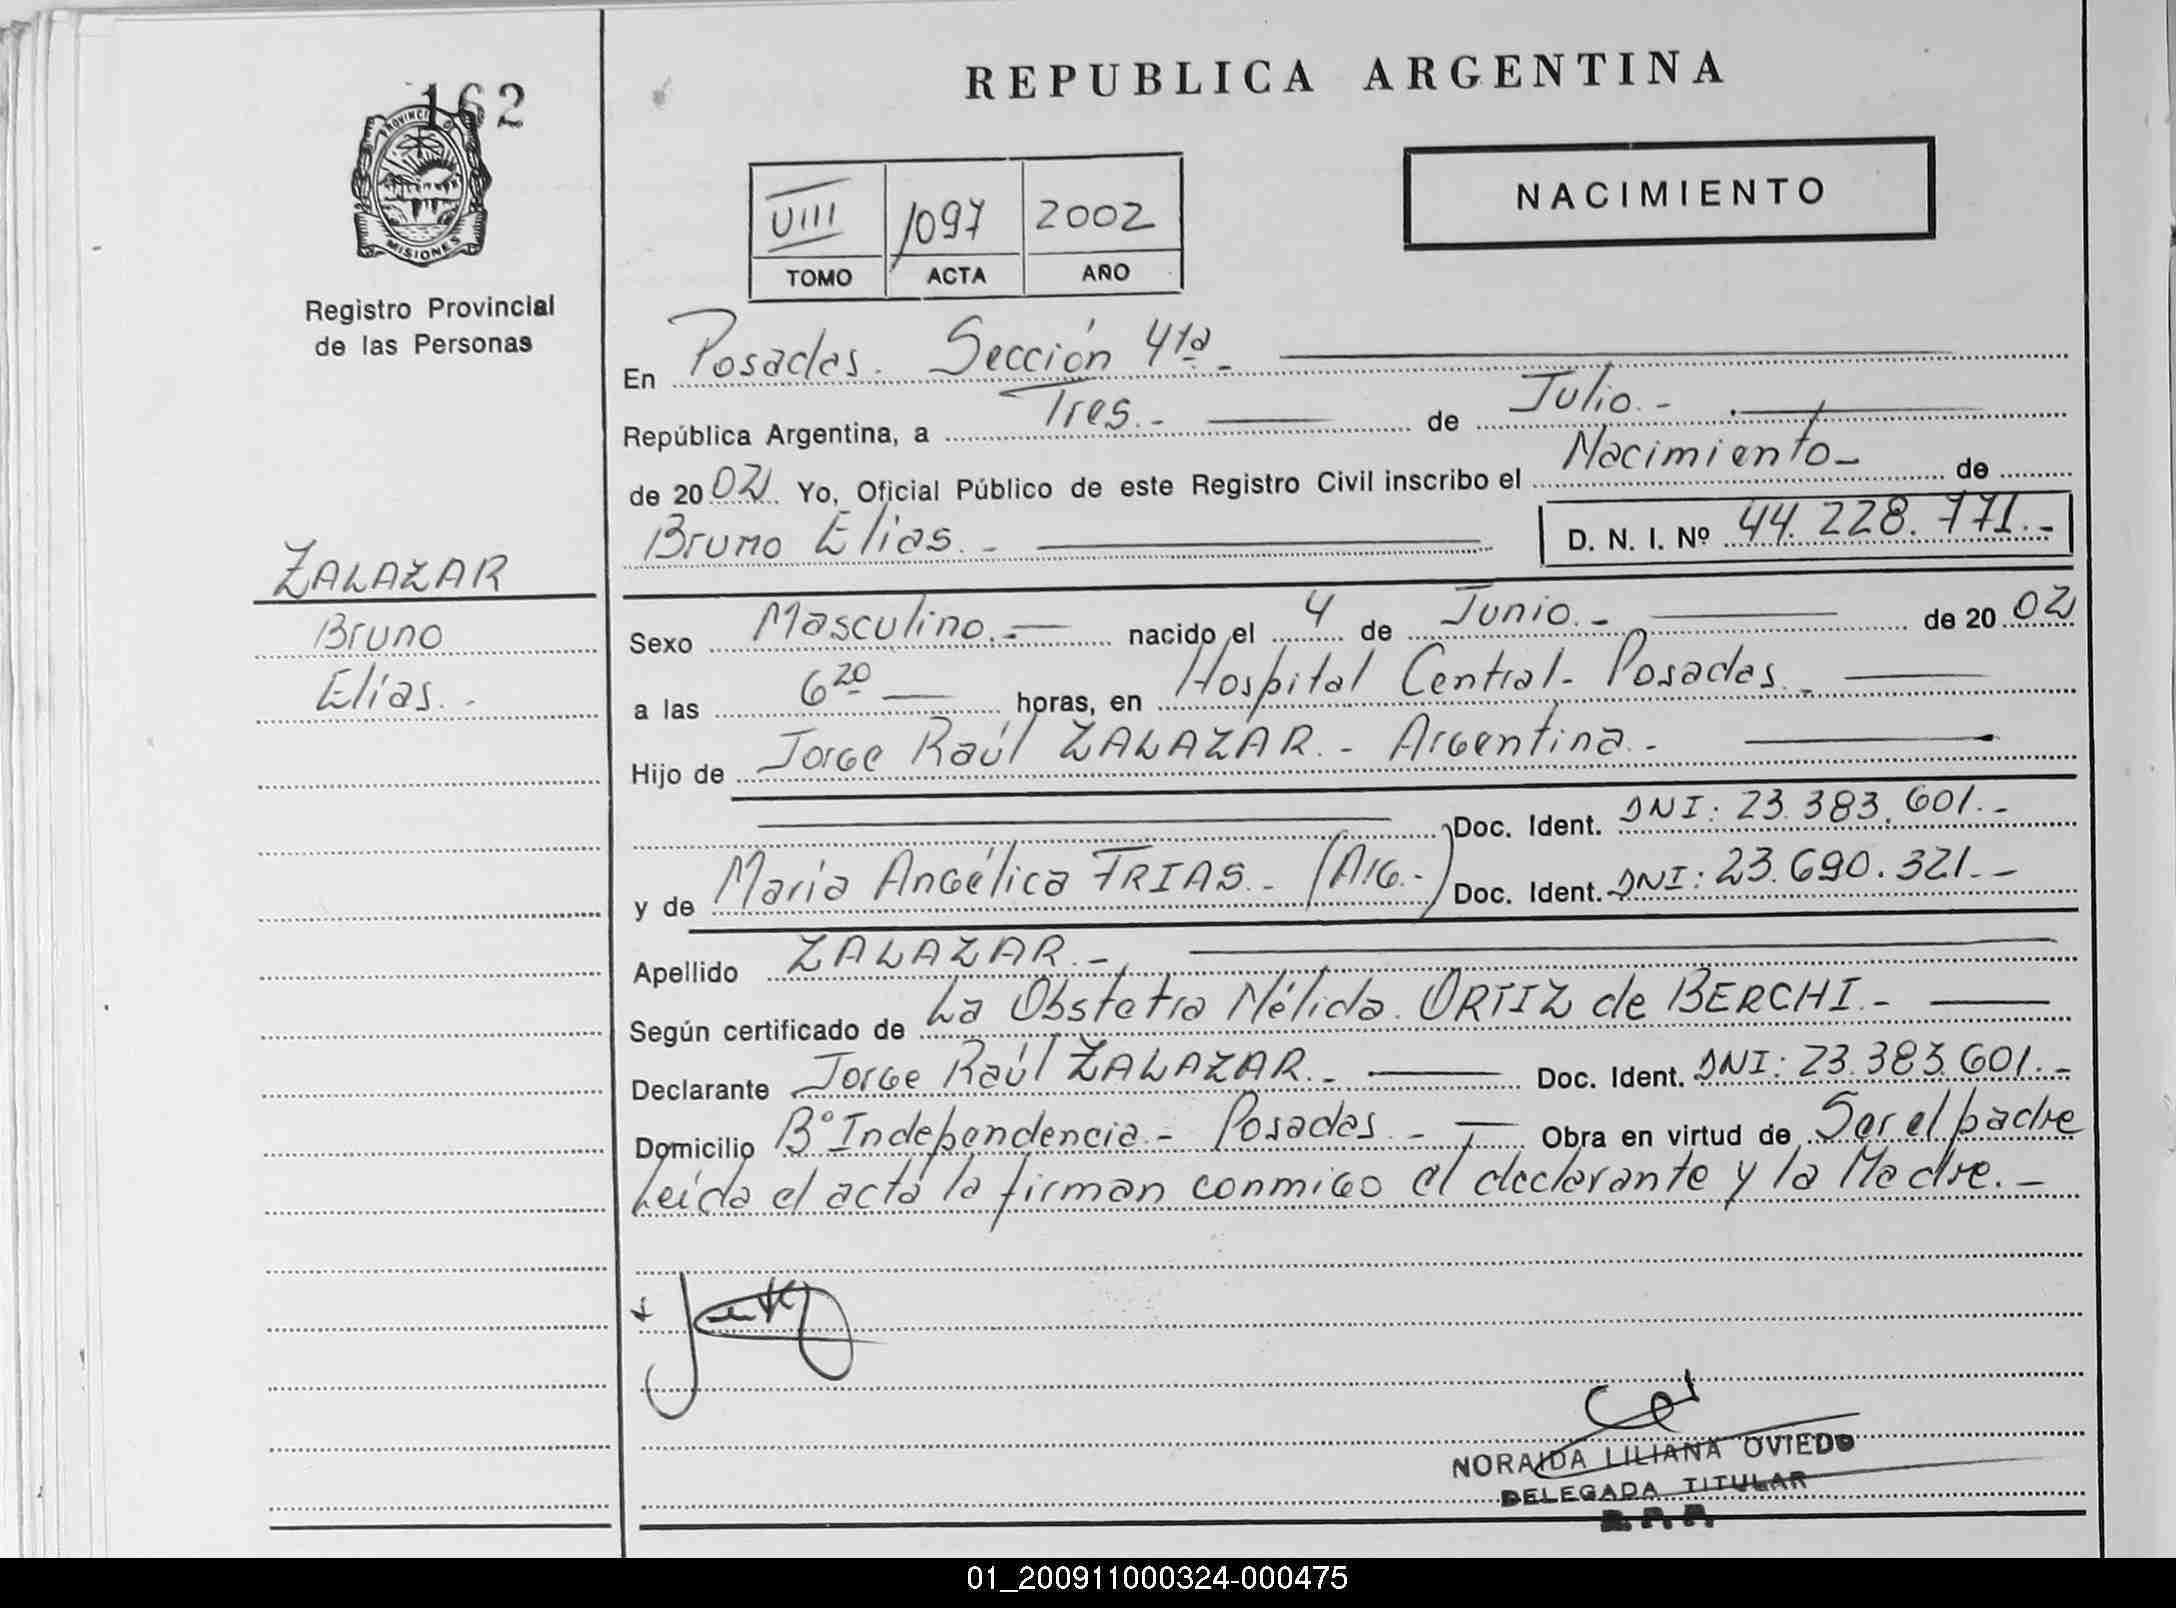 162
PROVINCIA DE
MISIONES
Registro Provincial
de las Personas
ZALAZAR
Bruno
Elías.-
REPUBLICA ARGENTINA
NACIMIENTO
VIII 1097 2002
TOMO ACTA AÑO
En Posadas. Sección 4ta.-
República Argentina, a Tres.- de Julio.-
de 2002 Yo, Oficial Público de este Registro Civil inscribo el Nacimiento- de
Bruno Elías.- D. N. I. Nº 44.228.771.-
Sexo Masculino.- nacido el 4 de Junio.- de 2002
a las 6 20 horas, en Hospital Central- Posadas.-
Hijo de Jorge Raúl ZALAZAR.- Argentina.-
Doc. Ident. DNI: 23.383.601.-
y de María Angélica FRIAS.- (Arg.-) Doc. Ident. DNI: 23.690.321.-
Apellido ZALAZAR.-
Según certificado de La Obstetra Nélida ORTIZ de BERCHI.-
Declarante Jorge Raúl ZALAZAR.- Doc. Ident. DNI: 23.383.601.-
Domicilio Bº Independencia.- Posadas.- Obra en virtud de Ser el padre
Leída el acta la firman conmigo el declarante y la Madre.-
NORAIDA LILIANA OVIEDO
DELEGADA TITULAR
R. P. P.
01_200911000324-000475